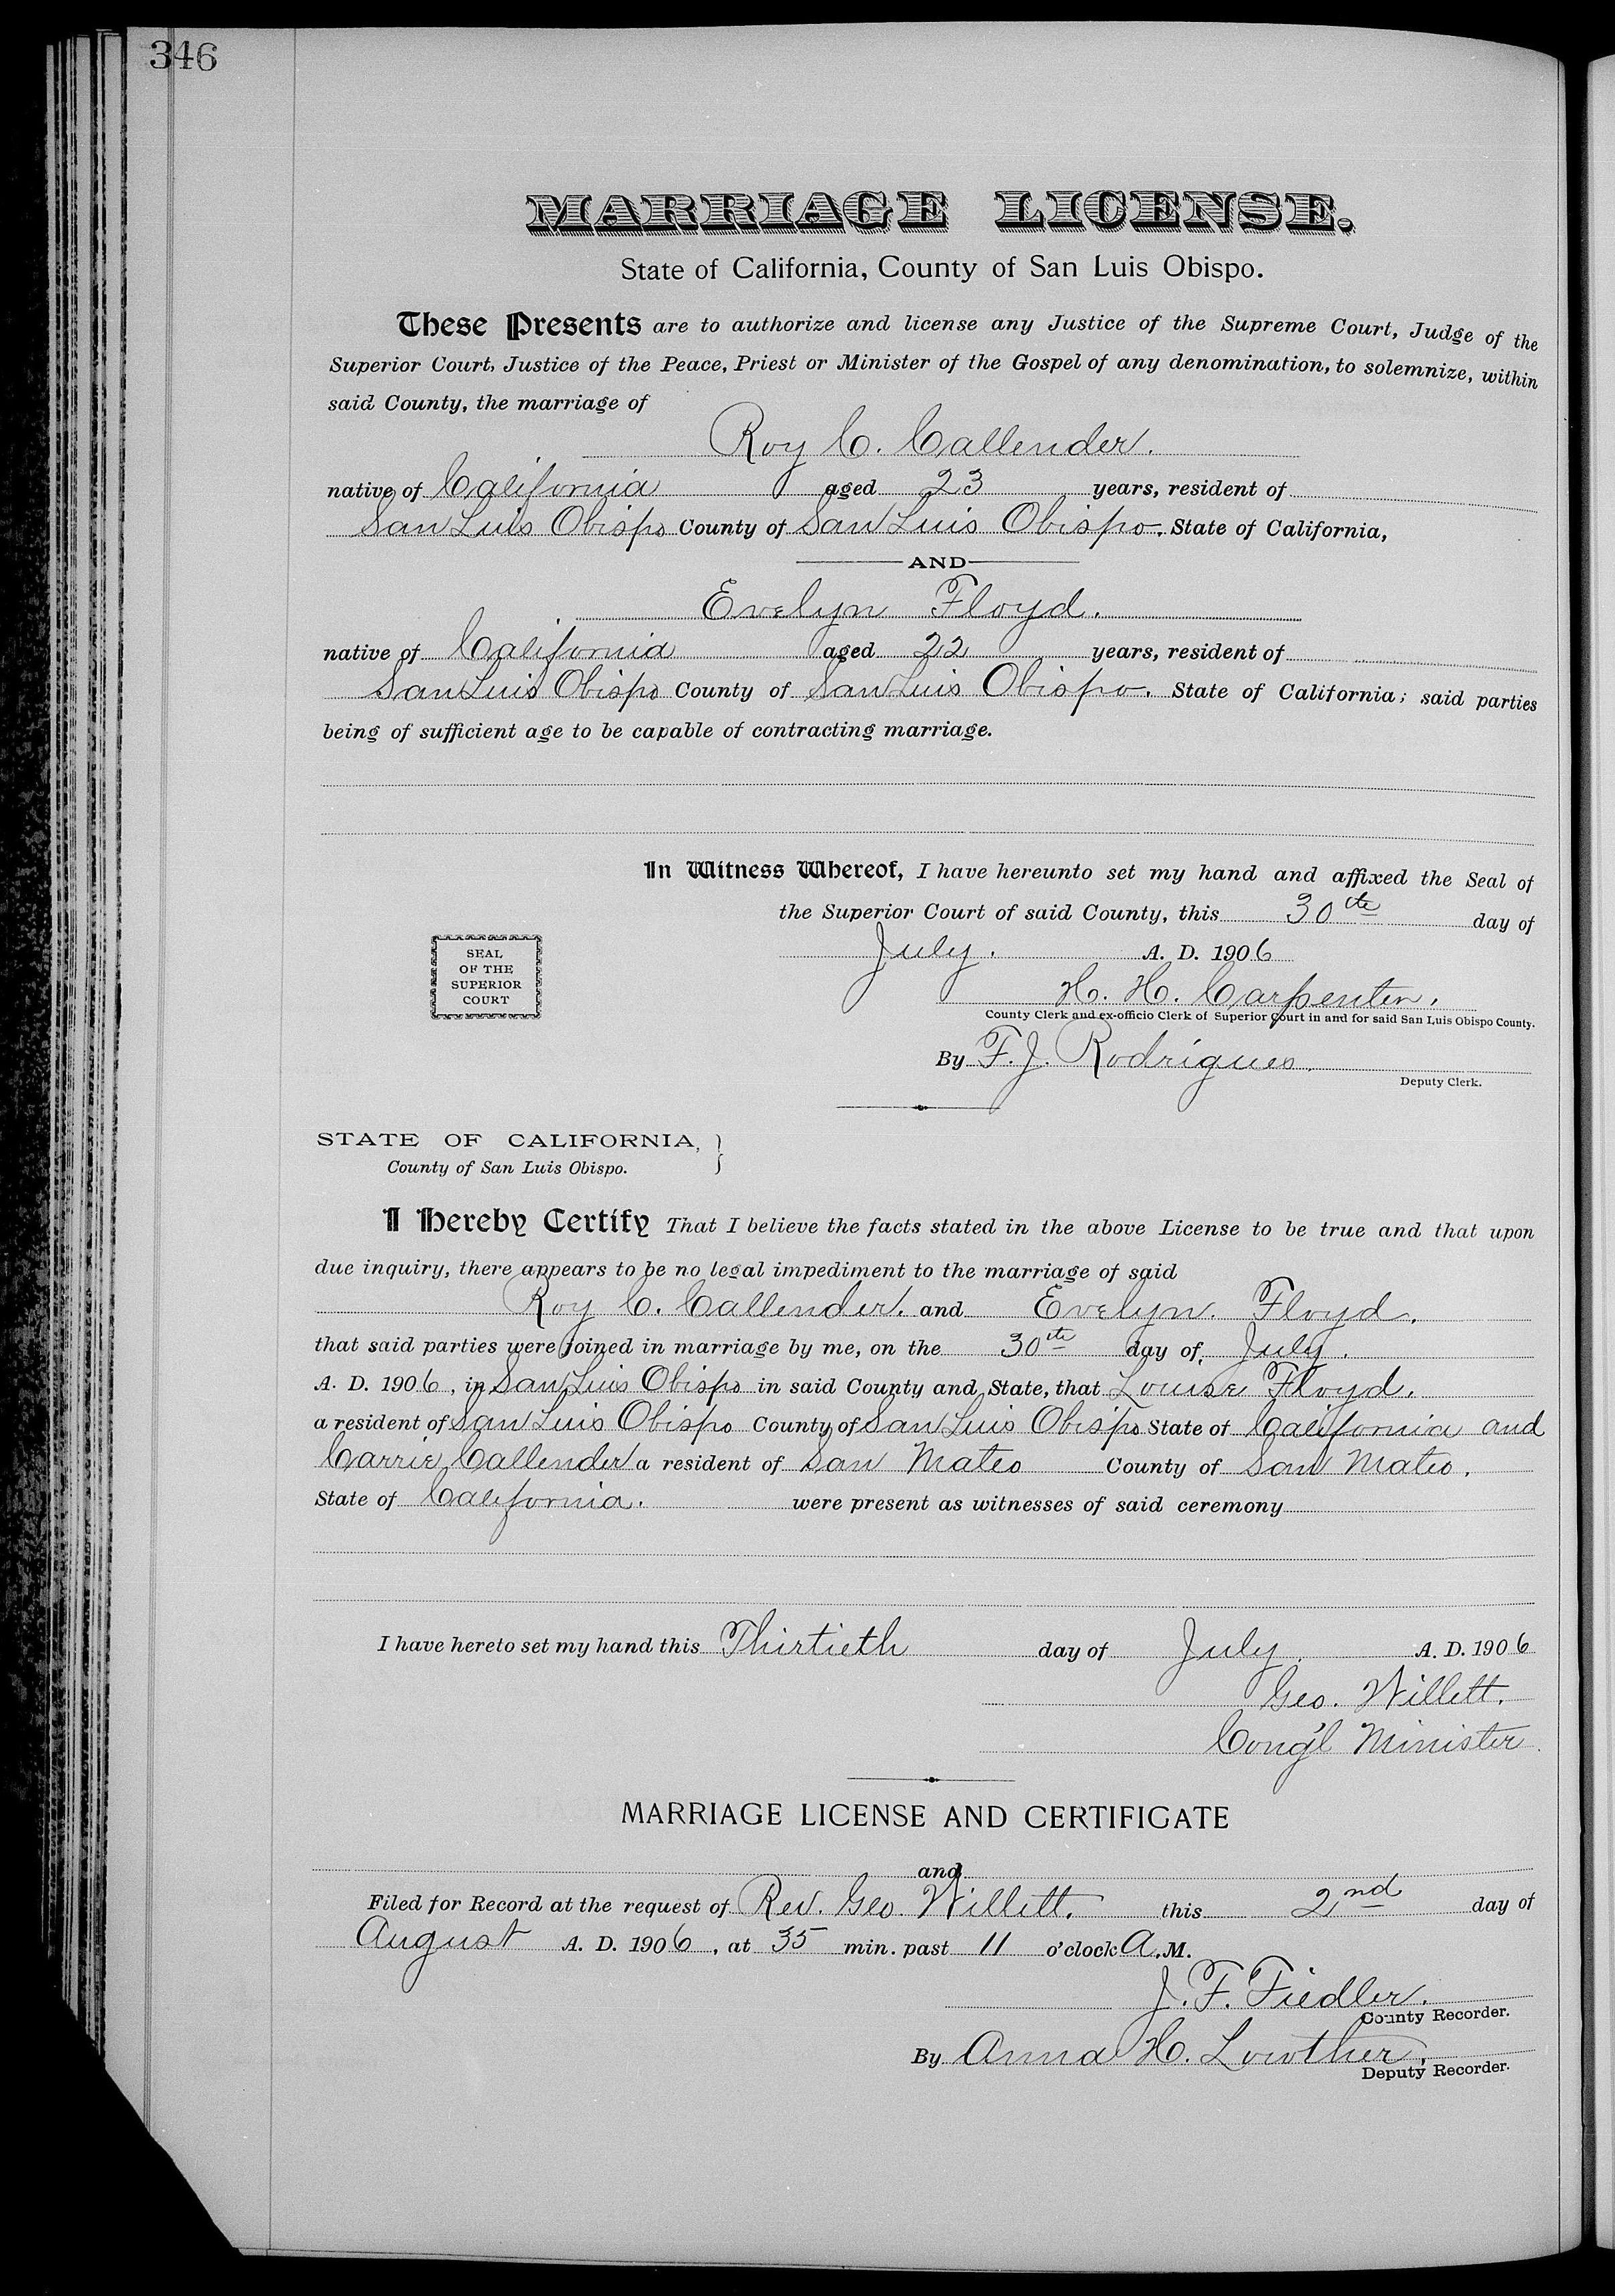 346
MARRIAGE LICENSE.
State of California, County of San Luis Obispo.
These Presents are to authorize and license any Justice of the Supreme Court, Judge of the
Superior Court, Justice of the Peace, Priest or Minister of the Gospel of any denomination, to solemnize, within
said County, the marriage of
Roy C. Callender.
native of California aged 23 years, resident of
San Luis Obispo County of San Luis Obispo. State of California,
AND
Evelyn Floyd.
native of California aged 22 years, resident of
San Luis Obispo County of San Luis Obispo. State of California; said parties
being of sufficient age to be capable of contracting marriage.
In Witness Whereof, I have hereunto set my hand and affixed the Seal of
the Superior Court of said County, this 30th day of
July. A. D. 1906
SEAL
OF THE
SUPERIOR
COURT
H. H. Carpenter.
County Clerk and ex-officio Clerk of Superior Court in and for said San Luis Obispo County.
By F. J. Rodrigues.
Deputy Clerk.
STATE OF CALIFORNIA, }
County of San Luis Obispo.
I Hereby Certify That I believe the facts stated in the above License to be true and that upon
due inquiry, there appears to be no legal impediment to the marriage of said
Roy C. Callender. and Evelyn. Floyd.
that said parties were joined in marriage by me, on the 30th day of July.
A. D. 1906, in San Luis Obispo in said County and State, that Louise Floyd.
a resident of San Luis Obispo County of San Luis Obispo State of California and
Carrie Callender a resident of San Mateo County of San Mateo.
State of California. were present as witnesses of said ceremony
I have hereto set my hand this Thirtieth day of July. A. D. 1906
Geo. Willett.
Cong'l Minister.
MARRIAGE LICENSE AND CERTIFICATE
and
Filed for Record at the request of Rev. Geo. Willett. this 2nd day of
August A. D. 1906, at 35 min. past 11 o'clock A.M.
J. F. Fiedler.
County Recorder.
By Anna H. Lowther.
Deputy Recorder.